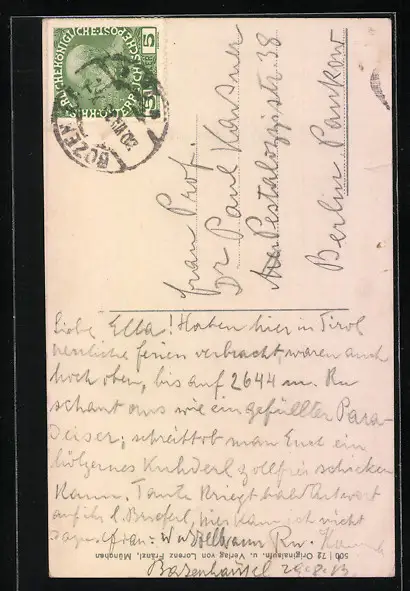 KAISERLICHE KÖNIGLICHE ÖSTERREICHISCHE POST
5
BOZEN
Frau Prof.
Dr Paul Kassner
Pestalozzistr. 38
Berlin Pankow
Liebe Ella! Haben hier in Tirol
herrliche Ferien verbracht, waren auch
hoch oben, bis auf 2644 m. Ru
schaut aus wie ein gefüllter Para-
deiser; schreit ob man Euch ein
hölzernes Kuhderl zollfrei schicken
kann. Tante kriegt bald Antwort
auf ihr l. Brieferl, hier kann ich nicht
Ru.
Batzenhäusl 29.8.13.
500 | 72 Originalaufn. u. Verlag von Lorenz Fränzl, München